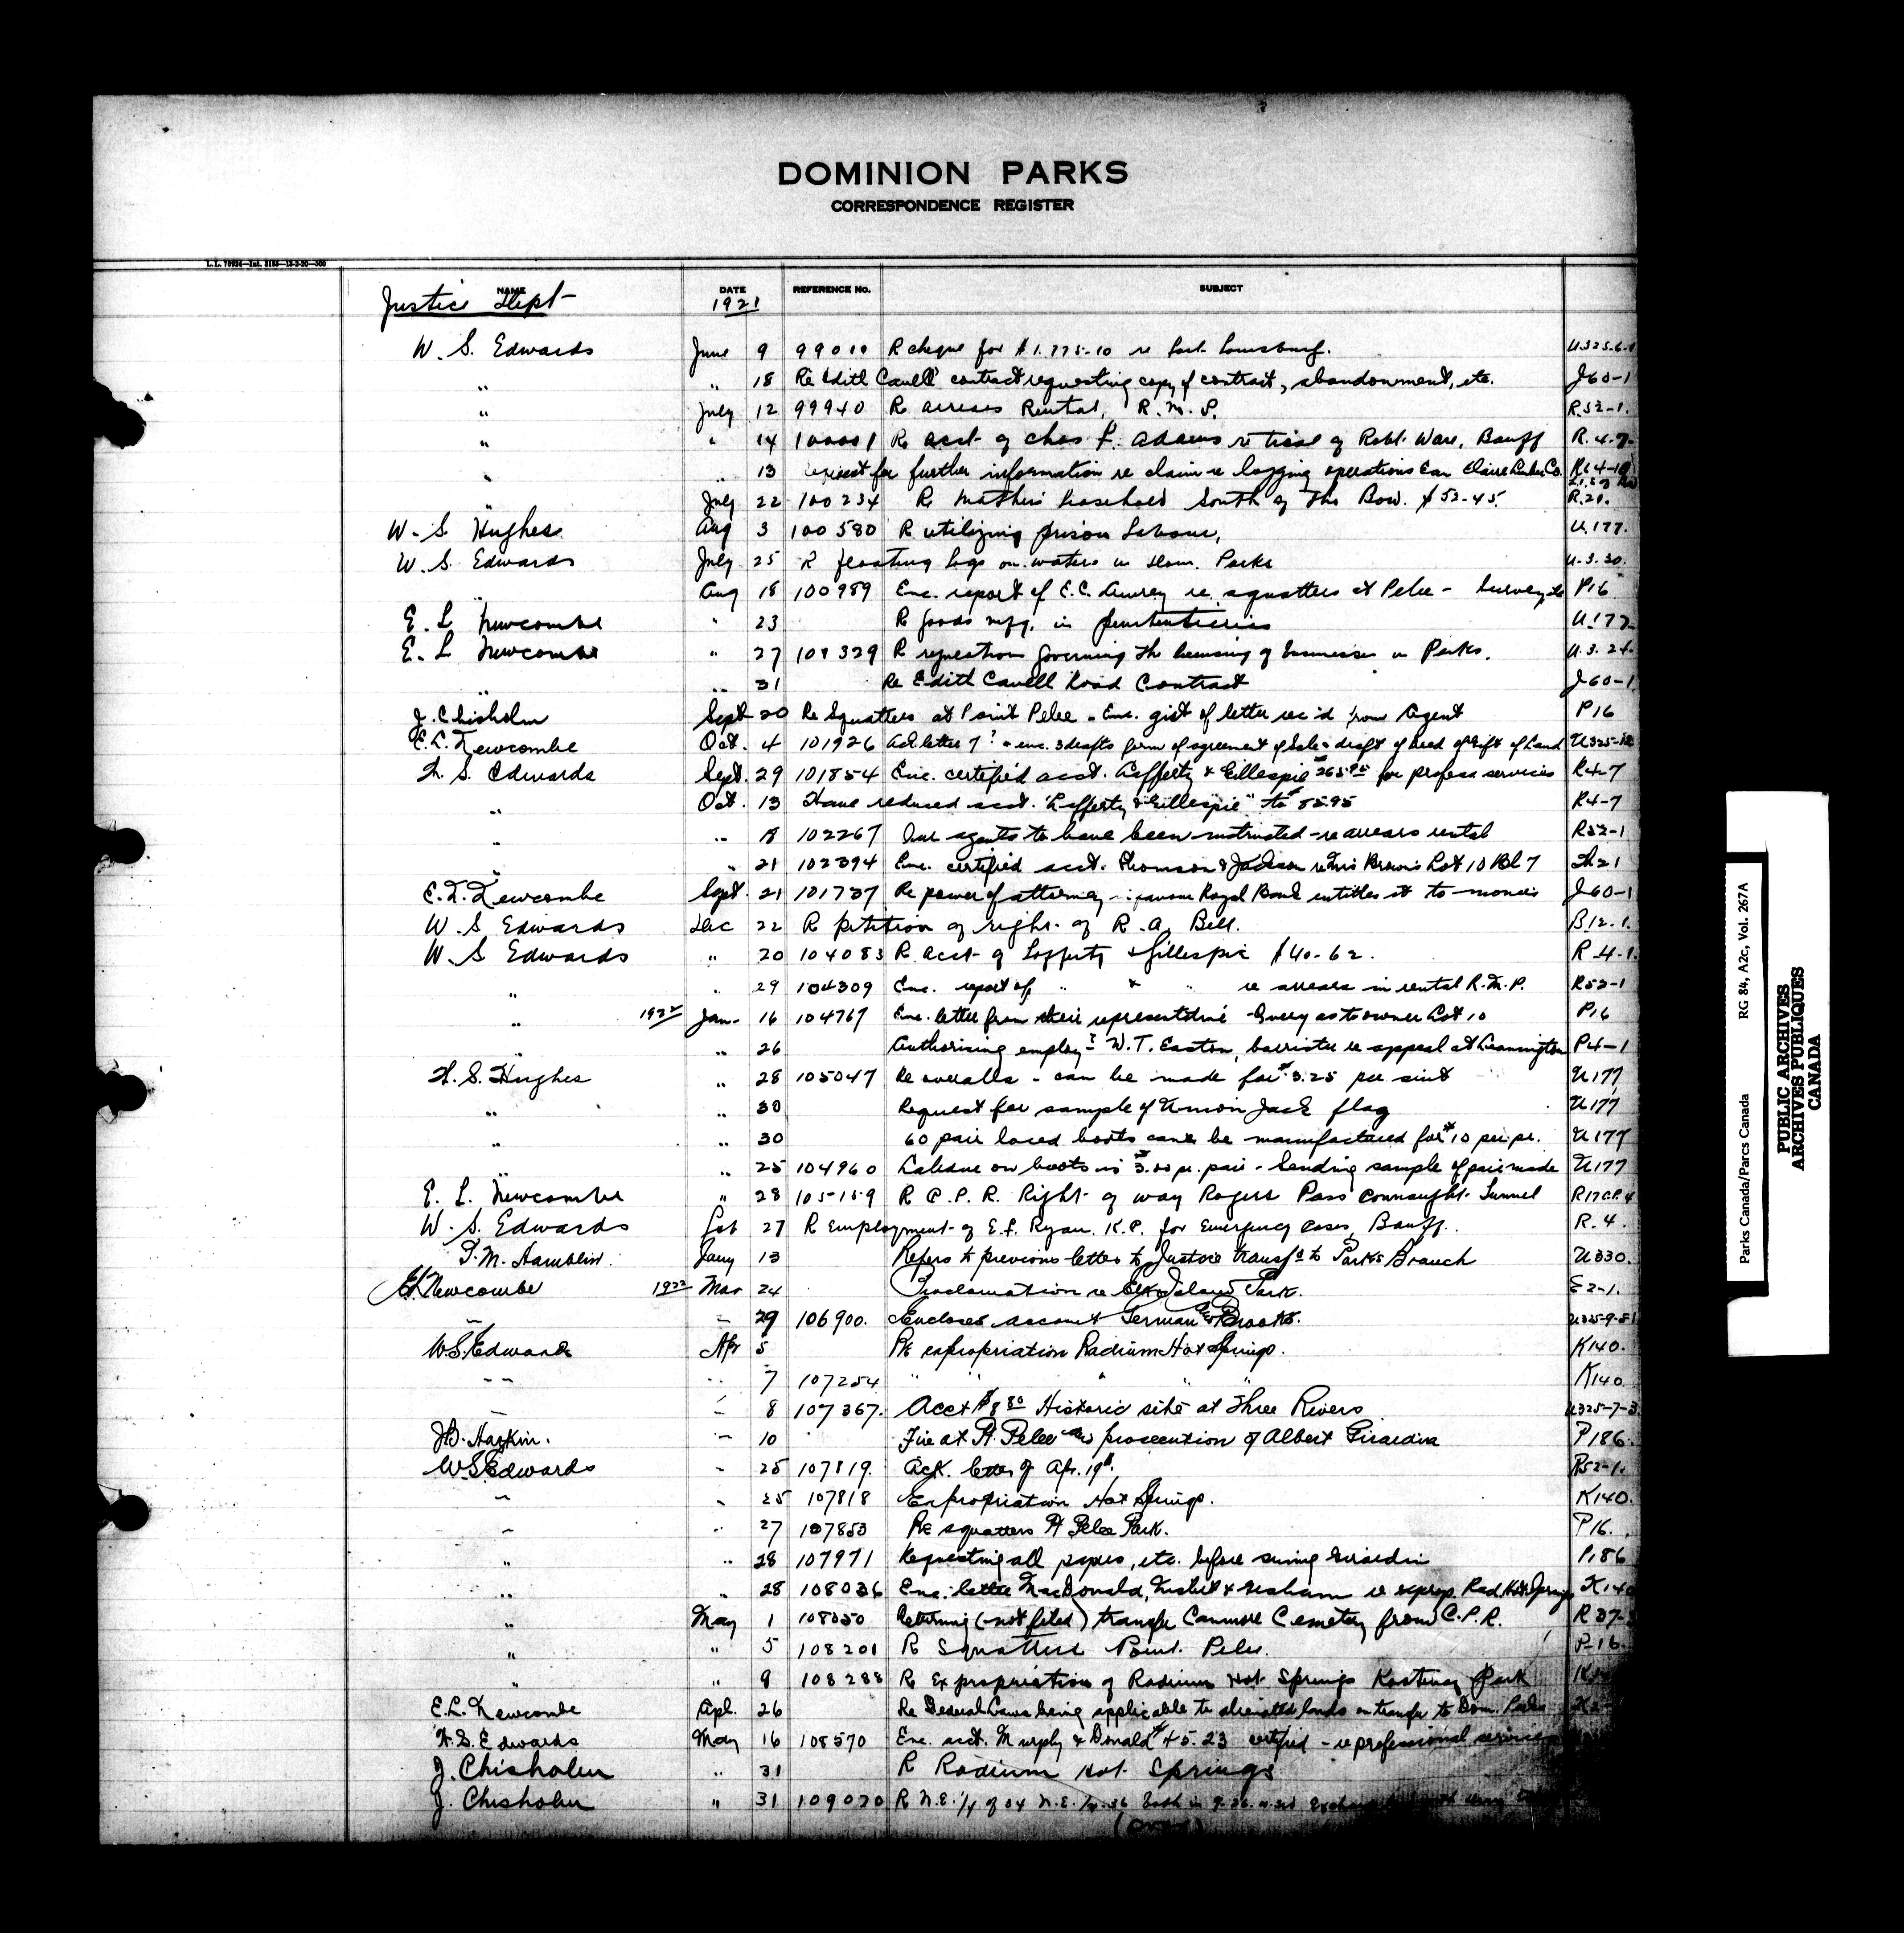 DOMINION PARKS
CORRESPONDENCE REGISTER
NAME DATE REFERENCE No. SUBJECT
Justice Dept 1921
W. S. Edwards June 9 99010 R cheque for $1.775-10 re Fort Louisburg. U.325-6-1
" " 18 Re Edith Cavell contract requesting copy of contract, abandonment, etc. J60-1
" July 12 99940 Re arrears Rental, R.M.P. R52-1.
" " 14 100001 Re acct of Chas F. Adams re trial of Robt. Ware, Banff R.4-7-
" " 13 request for further information re claim re logging operations Eau Claire Lumber Co.
" July 22 100234 Re Mather leasehold South of the Bow. $52-45. R.21.
W. S. Hughes Aug 3 100580 R utilizing prison Labour, U.177.
W. S. Edwards July 25 R floating logs on waters in Dom. Parks U.3.30.
" Aug 18 100989 Enc. report of E.C. re squatters at Pelee - Survey P16
E. L Newcombe " 23 R goods mfg. in penitentiaries U.177
E. L Newcombe " 27 101329 R regulations governing the licensing of businesses in Parks. U.3.24.
" " 31 Re Edith Cavell Road Contract J60-1
J. Chisholm Sept 20 Re Squatters at Point Pelee - Enc. gist of letter rec'd from Agent P16
E.L. Newcombe Oct. 4 101926 Ack letter 7? & enc. 3 drafts form of agreement of Sale & draft of Deed of Gift of Land
W. S. Edwards Sept. 29 101854 Enc. certified acct. Lafferty & Gillespie for profess services R4-7
" Oct. 13 Have reduced acct. "Lafferty & Gillespie" to $85.95 R4-7
" " 18 102267 Our agents to have been instructed - re arrears rental R52-1
" " 21 102394 Enc. certified acct. Thomson & Jackson Brown's Lot 10 Bl 7
E.L. Newcombe Sept. 21 101737 Re power of attorney in favour Royal Bank entitles it to monies J60-1
W. S Edwards Dec 22 R petition of right of R. A. Bell. B.12.1.
W. S Edwards " 20 104083 R acct of Lafferty & Gillespie $40-62. R-4-1.
" " 29 104309 Enc. report of " & " re arrears in rental R.M.P. R52-1
" 1922 Jan- 16 104767 Enc. letter from their representative - Query as to owner Lot 10 P16
" " 26 Authorising employ't W.T. Easton, barrister re appeal at Leamington P4-1
W. S. Hughes " 28 105047 Re overalls - can be made for $3.25 per suit U177
" " 30 Request for sample of Union Jack flag U177
" " 30 60 pair laced boots can be manufactured for $10 per pr. U177
" " 25 104960 Labour on boots is $3.00 pr. pair - Sending sample of pair made U177
E. L. Newcombe " 28 105159 R C.P.R. Right of way Rogers Pass Connaught Tunnel R17CP.4
W. S. Edwards Feb 27 R Employment of E.F. Ryan. K.C. for Emergency Cases, Banff. R.4.
T.M. Hamblin. Jany 13 Refers to previous letter to Justice transf'd to Parks Branch U330.
E.L. Newcombe 1922 Mar 24 Proclamation re Elk Island Park. E2-1.
" " 29 106900. Encloses account German & Brooks. U325-9-51
W.S. Edwards Apr 5 Re expropriation Radium Hot Springs. K140.
" " 7 107254 " " " " K140.
" " 8 107367. Acct $8.80 Historic site at Three Rivers U325-7-3.
J.B. Harkin. " 10 Fire at Pt. Pelee and prosecution of Albert Girardin P186.
W.S. Edwards " 25 107819. Ack. letter of Apr. 19th. R52-1.
" " 25 107818 Expropriation Hot Springs. K140.
" " 27 107853 Re squatters Pt Pelee Park. P16.
" " 28 107971 Requesting all papers, etc. before suing Girardin P186
" " 28 108036 Enc. letter MacDonald, Nisbet & Graham re exprop. Rad. Hot Springs K140
" May 1 108050 Returning (not filed) transfer Canmore Cemetery from C.P.R. R37-
" " 5 108201 R Squatters Point Pelee. P-16.
" " 9 108288 R Expropriation of Radium Hot Springs Kootenay Park
E.L. Newcombe Apl. 26 Re Federal Laws being applicable to alienated lands on transfer to Dom. Parks
W. S. Edwards May 16 108570 Enc. acct. Murphy & Donald $45.23 certified - re professional services
J. Chisholm " 31 R Radium Hot Springs
J. Chisholm " 31 109070 R N.E. 1/4 of
(over)
Parks Canada/Parcs Canada RG 84, A2c, Vol. 267A
PUBLIC ARCHIVES
ARCHIVES PUBLIQUES
CANADA